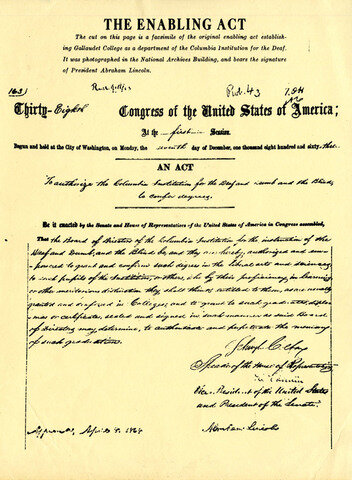 THE ENABLING ACT
The cut on this page is a facsimile of the original enabling act establish-
ing Gallaudet College as a department of the Columbia Institution for the Deaf.
It was photographed in the National Archives Building, and bears the signature
of President Abraham Lincoln.
Pub. 43
Thirty-Eighth Congress of the United States of America;
At the first Session.
Begun and held at the City of Washington, on Monday, the seventh day of December, one thousand eight hundred and sixty-three
AN ACT
To authorize the Columbia Institution for the Deaf and Dumb and the Blind
to confer degrees.
Be it enacted by the Senate and House of Representatives of the United States of America in Congress assembled,
That the Board of Directors of the Columbia Institution for the instruction of the
Deaf and Dumb, and the Blind be, and they are hereby, authorized and em-
powered to grant and confirm such degrees in the liberal arts and sciences,
to such pupils of the Institution, or others, who by their proficiency in learning
or other meritorious distinction they shall think entitled to them, as are usually
granted and conferred in Colleges; and to grant to such graduates diplo-
mas or certificates, sealed and signed in such manner as said Board
of Directors may determine, to authenticate and perpetuate the memory
of such graduations.
Schuyler Colfax
Speaker of the House of Representatives
H. Hamlin
Vice President of the United States
and President of the Senate.
Approved, April 8, 1864
Abraham Lincoln